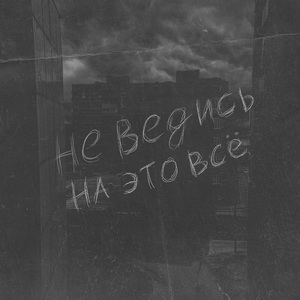 не ведись
на это всё